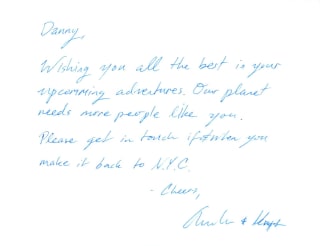 Danny,
Wishing you all the best in your
upcomming adventures. Our planet
needs more people like you.
Please get in touch if & when you
make it back to N.Y.C.
- Cheers,
&